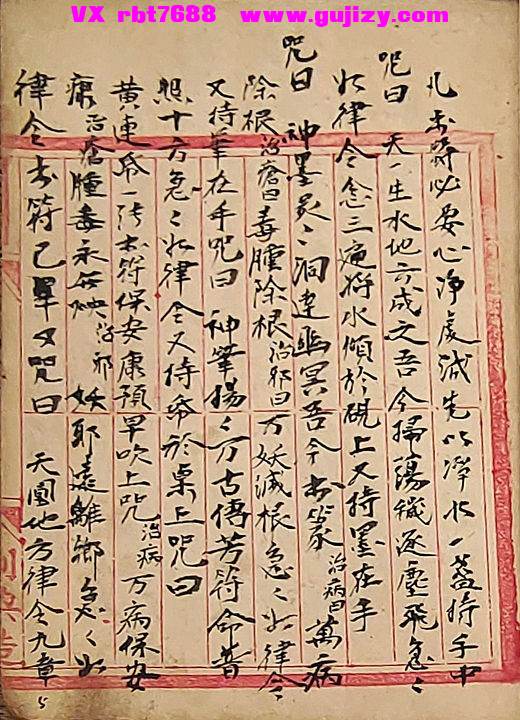 VX rbt7688 www.gujizy.com
凡书符必要心净虔诚先以净水一盏持手中
咒曰 天一生水地六成之吾今扫荡秽逐塵飛急〻
如律令念三遍将水傾於硯上又持墨在手
咒曰 神墨炙〻洞達幽冥吾今书篆治病曰萬病
除根治瘡曰毒腫除根治邪曰万妖滅根急〻如律令
又持筆在手咒曰 神筆揚〻万古傳芳符命普
照十方急〻如律令又侍帋於桌上咒曰
黄連帋一张书符保安康預早吹上咒治病万病保安
康治瘡腫毒永無殃治邪妖邪遠離鄉急〻如
律令书符已畢又咒曰 天圓地方律令九章